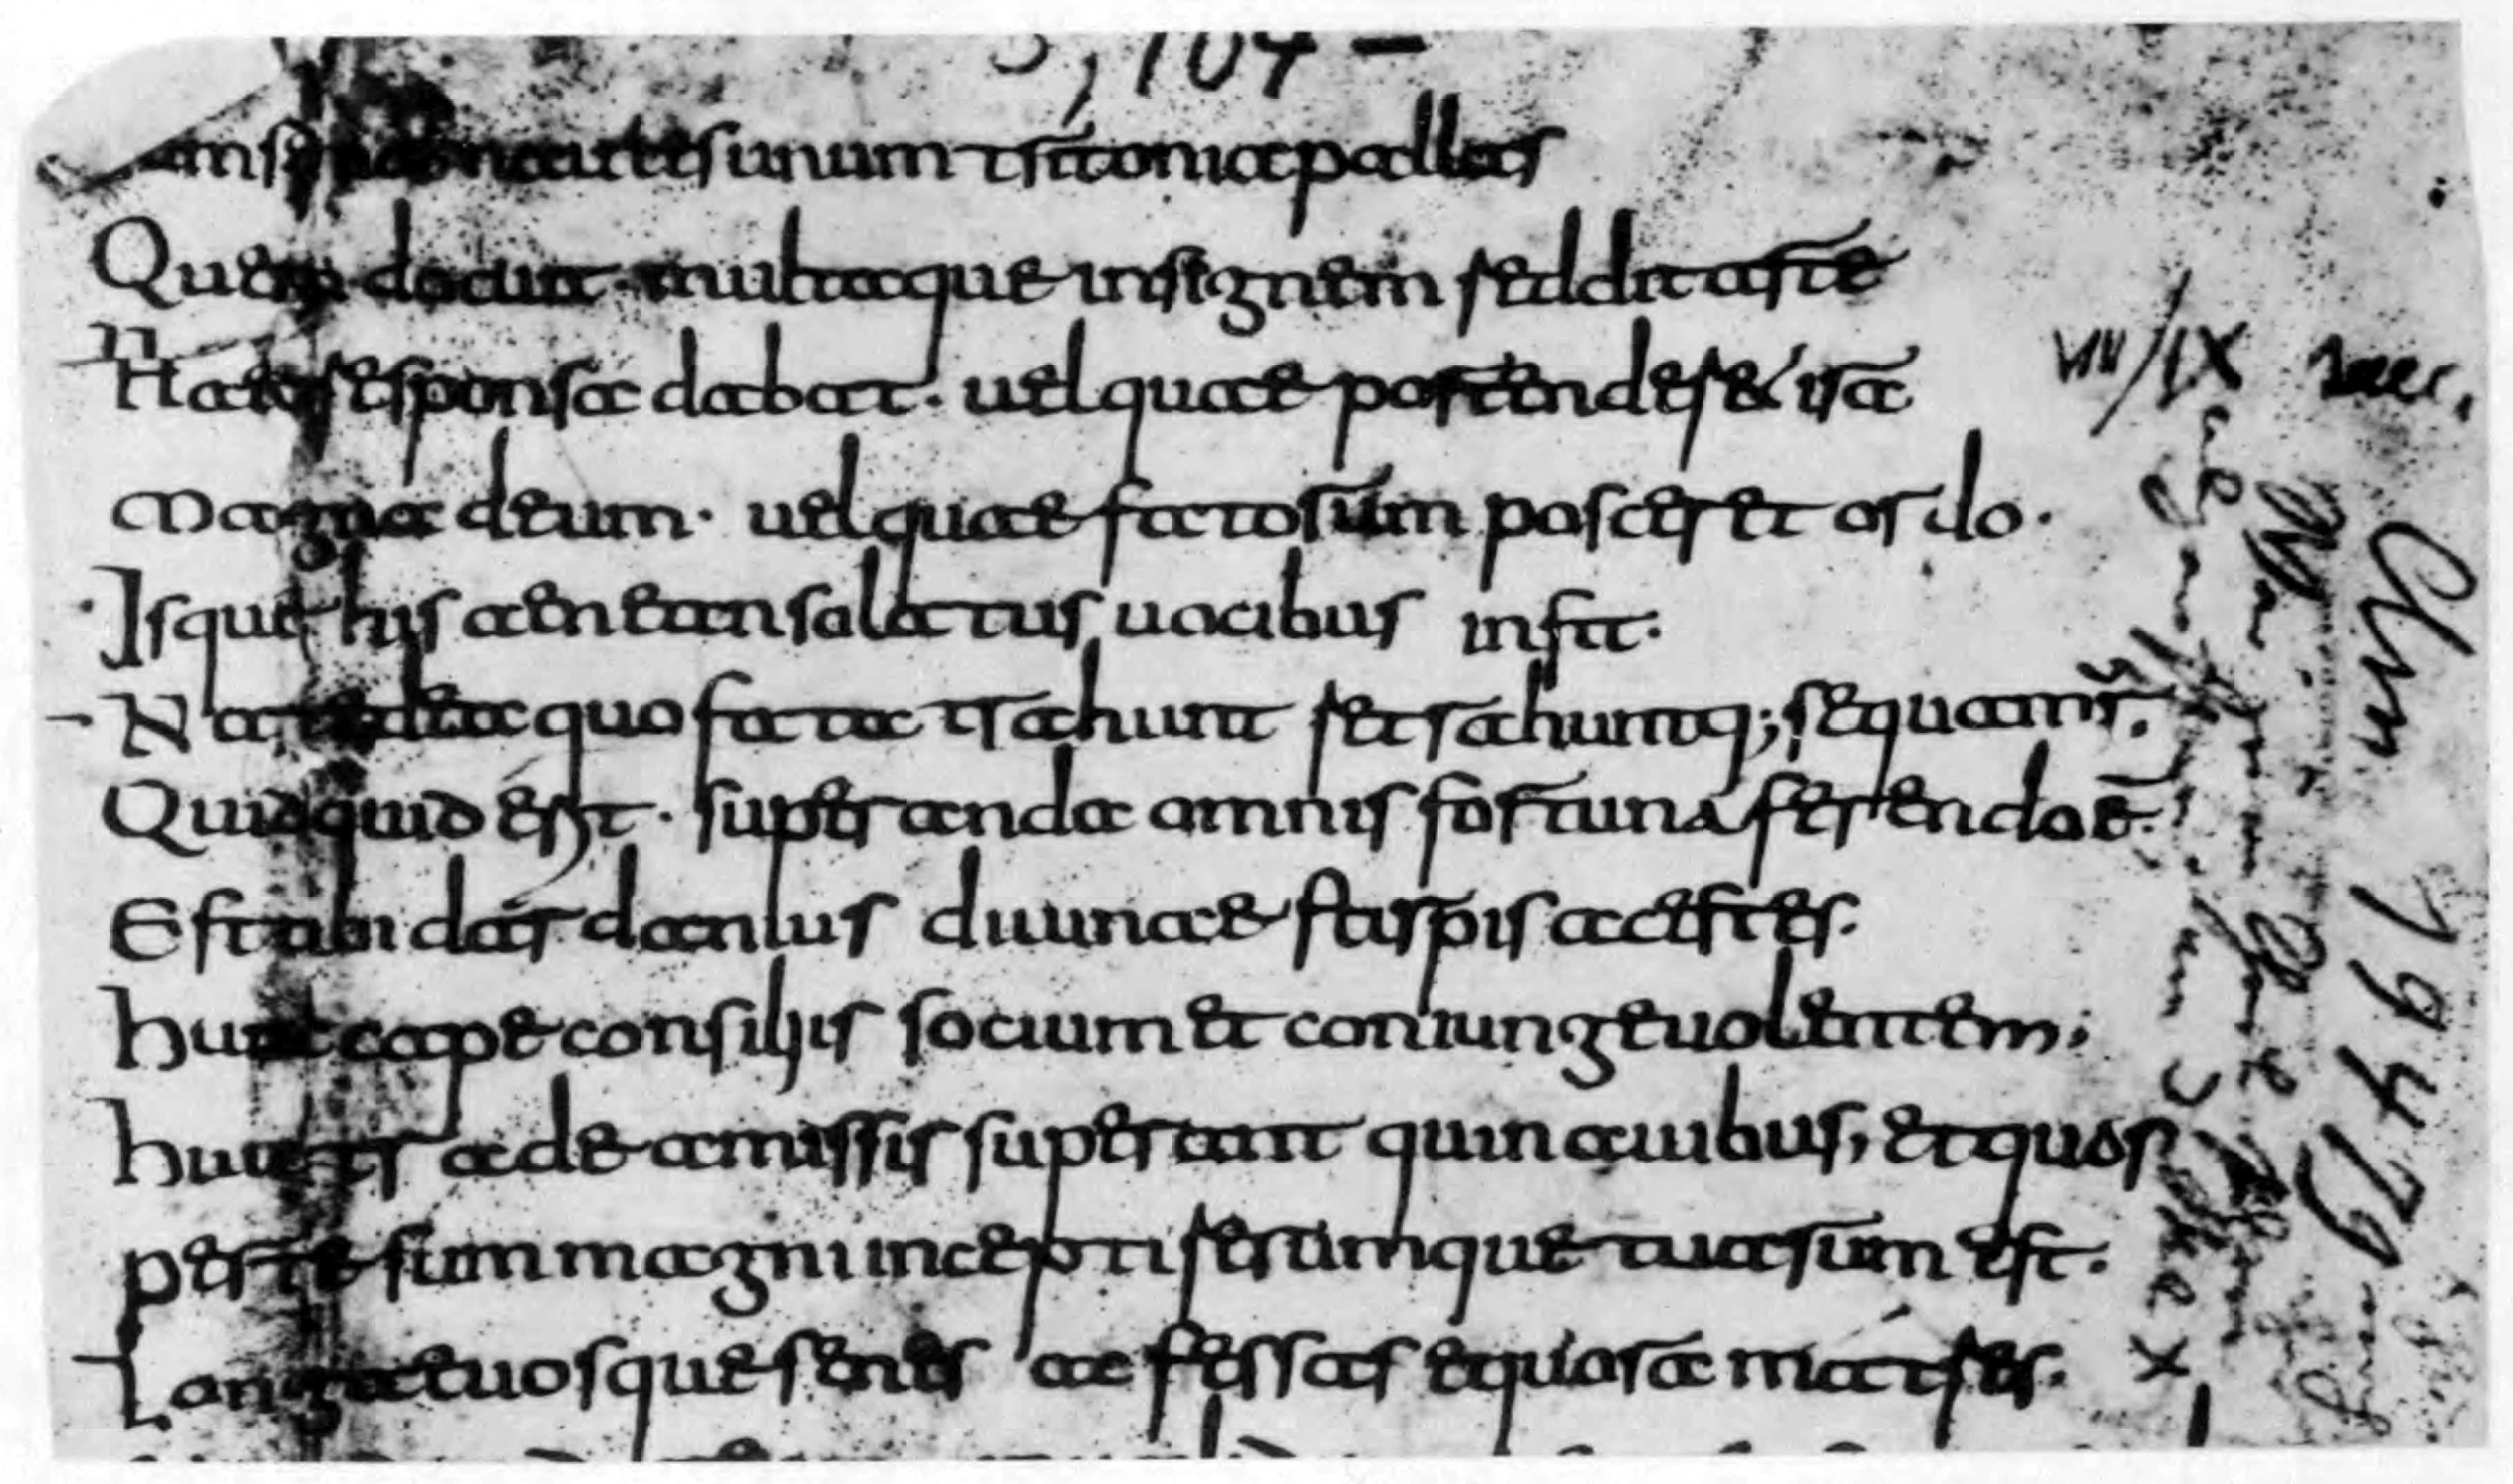 5, 704 –
nautes unum tritonia pallas
Quem docuit · multaque insignem reddit arte
responsa dabat · uel quae portender& ira
magna deum · uel quae fatorum posceret ordo ·
Isque his aenean solatus uocibus infit ·
Nate dea quo fata trahunt retrahuntq; sequamur ·
Quidquid est · superanda omnis fortuna ferendo ē ·
Est tibi dardanius diuinae stirpis acestes ·
hunc cape consiliis socium et coniunge uolentem;
huic trade amissis superant qui nauibus, et quos
pertesum magni incepti rerumque tuarum est ·
Longaeuosque senes ac fessas equora matres ·
VIII/IX saec.
Clm 19479